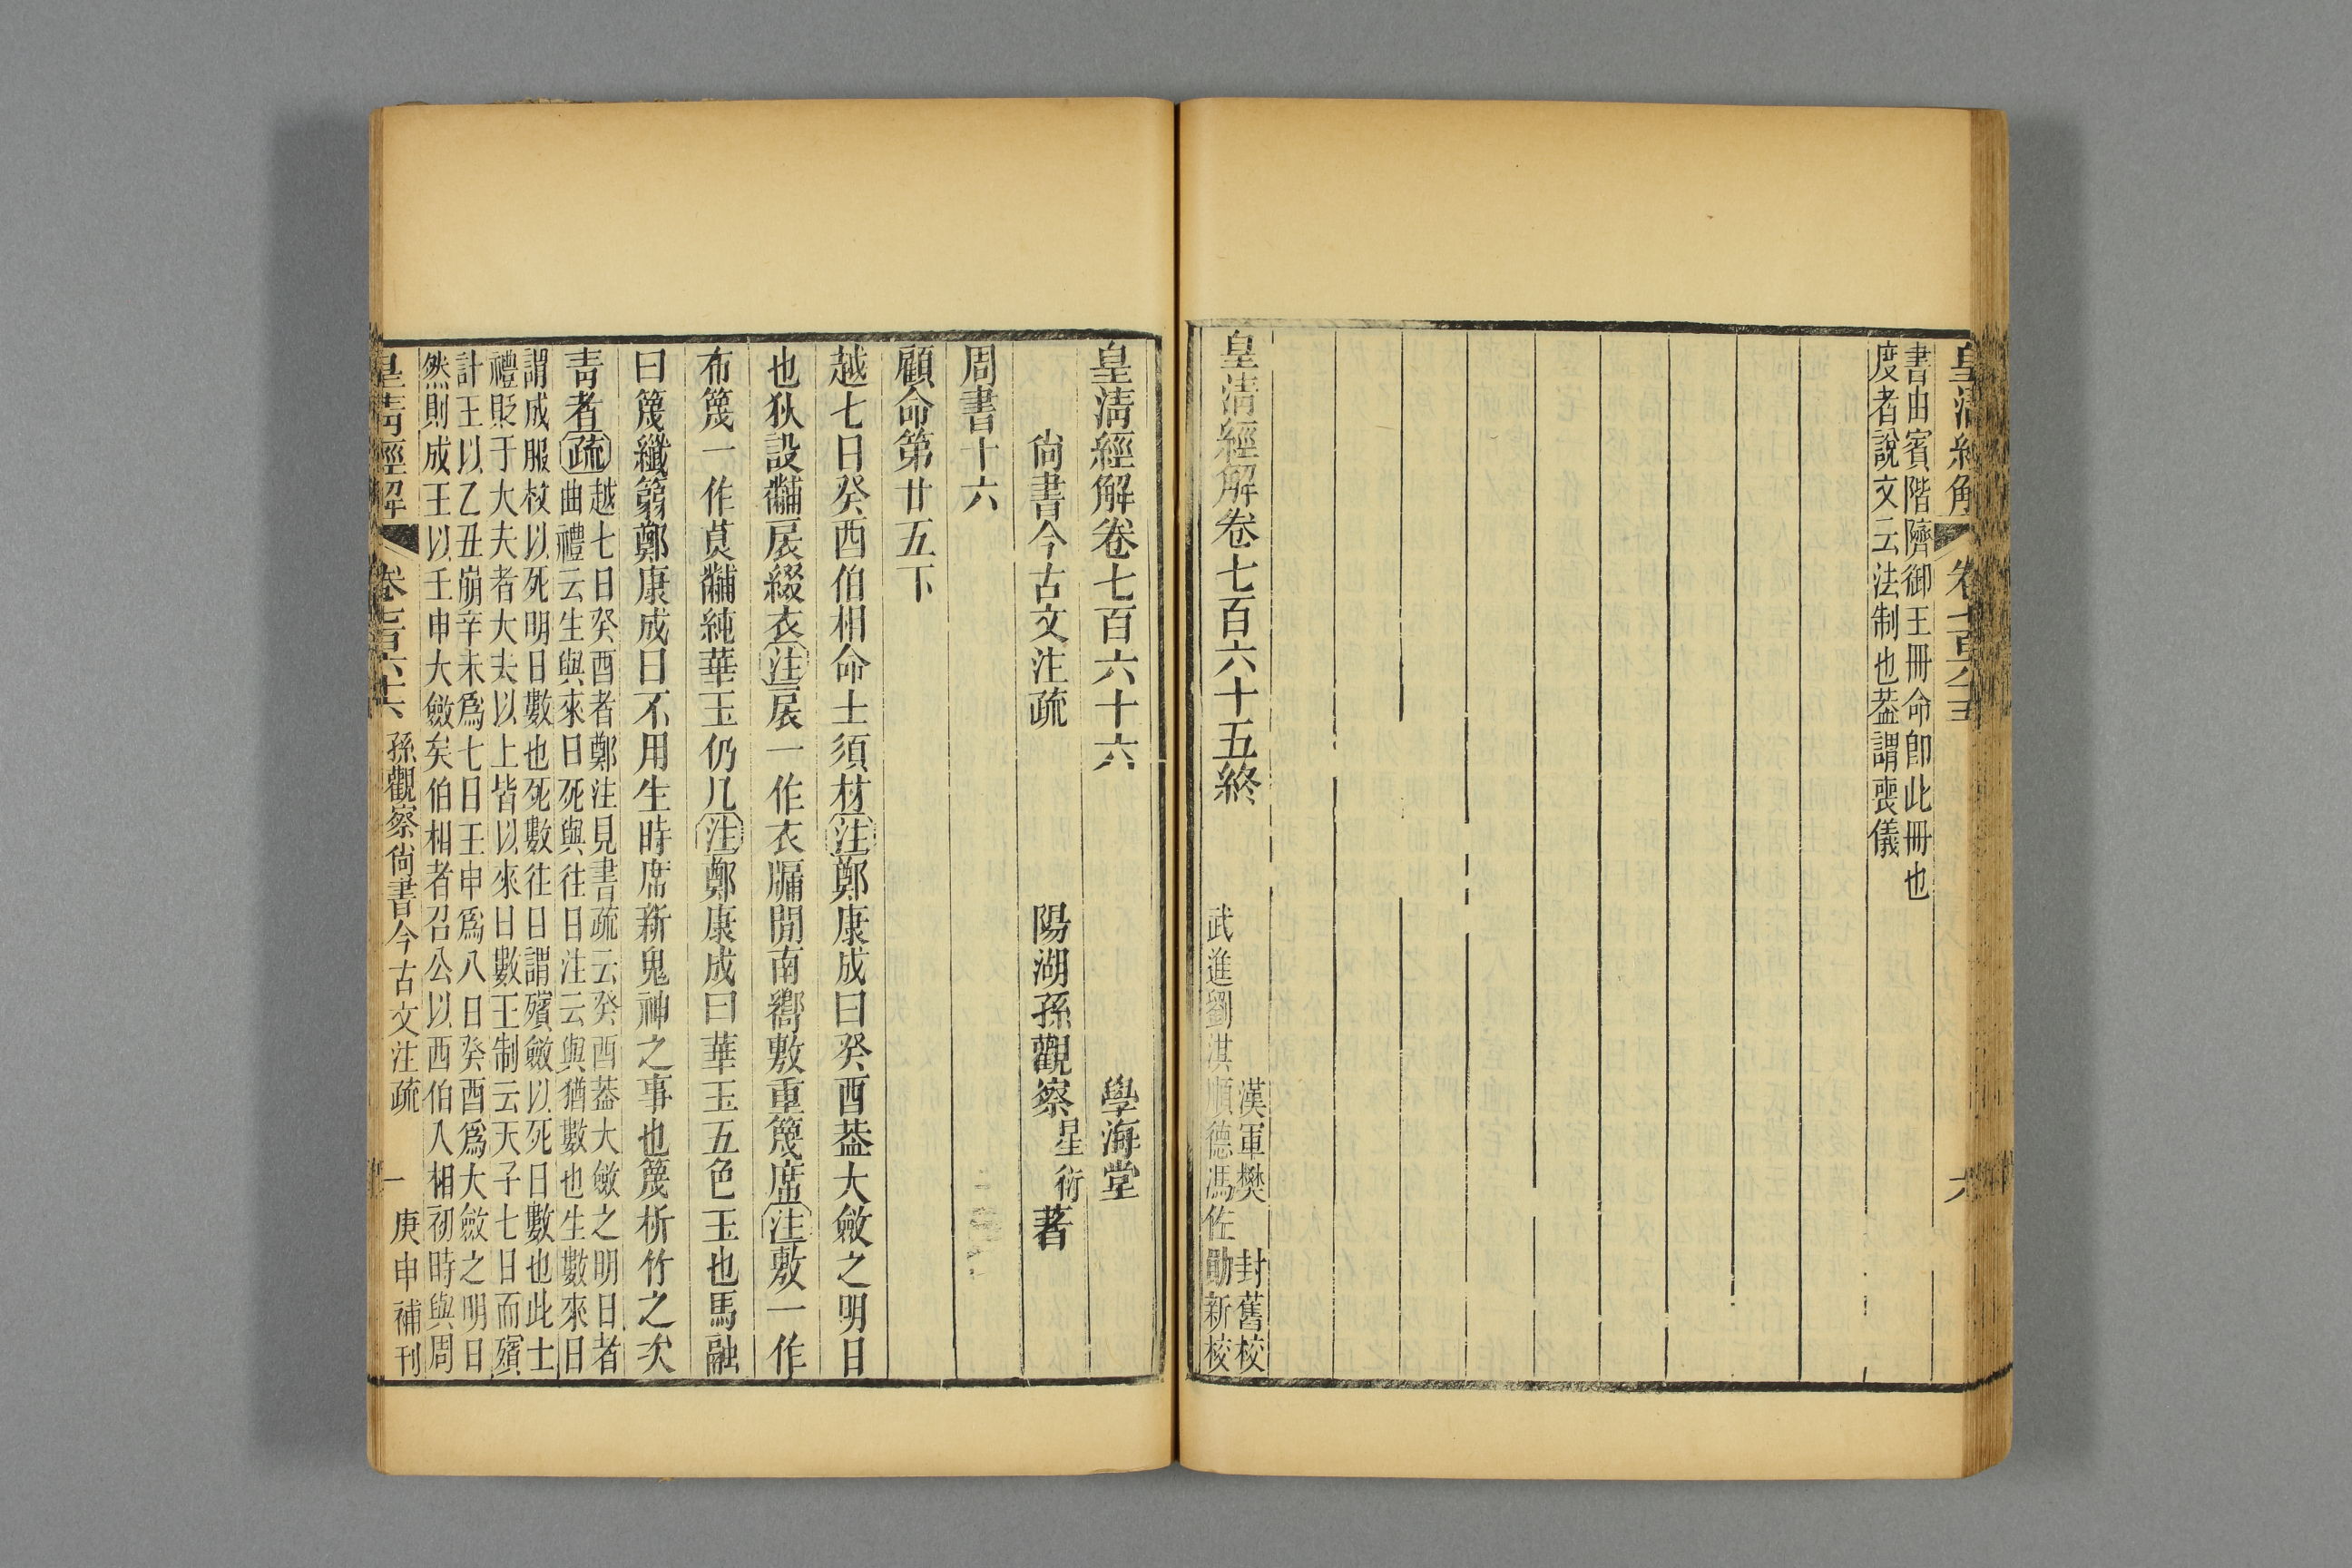 皇清經解
卷七百六十五
六
書由賓階隮御王冊命卽此冊也
度者說文云法制也葢謂喪儀
皇清經解卷七百六十五終
漢軍樊封舊校
武進劉淇順德馮佐勖新校
皇清經解卷七百六十六
學海堂
尙書今古文注疏
陽湖孫觀察星衍著
周書十六
顧命第廿五下
越七日癸酉伯相命士須材注鄭康成曰癸酉葢大斂之明日
也狄設黼扆綴衣注扆一作衣牖閒南嚮敷重篾席注敷一作
布篾一作莫黼純華玉仍几注鄭康成曰華玉五色玉也馬融
曰篾纖蒻鄭康成曰不用生時席新鬼神之事也篾析竹之次
靑者疏越七日癸酉者鄭注見書疏云癸酉葢大斂之明日者
曲禮云生與來日死與往日注云與猶數也生數來日
謂成服杖以死明日數也死數往日謂殯斂以死日數也此士
禮貶于大夫者大夫以上皆以來日數王制云天子七日而殯
計王以乙丑崩辛未爲七日王申爲八日癸酉爲大斂之明日
然則成王以壬申大斂矣伯相者召公以西伯入相初時與周
皇清經解
卷七百六十六
孫觀察尙書今古文注疏
一
庚申補刊